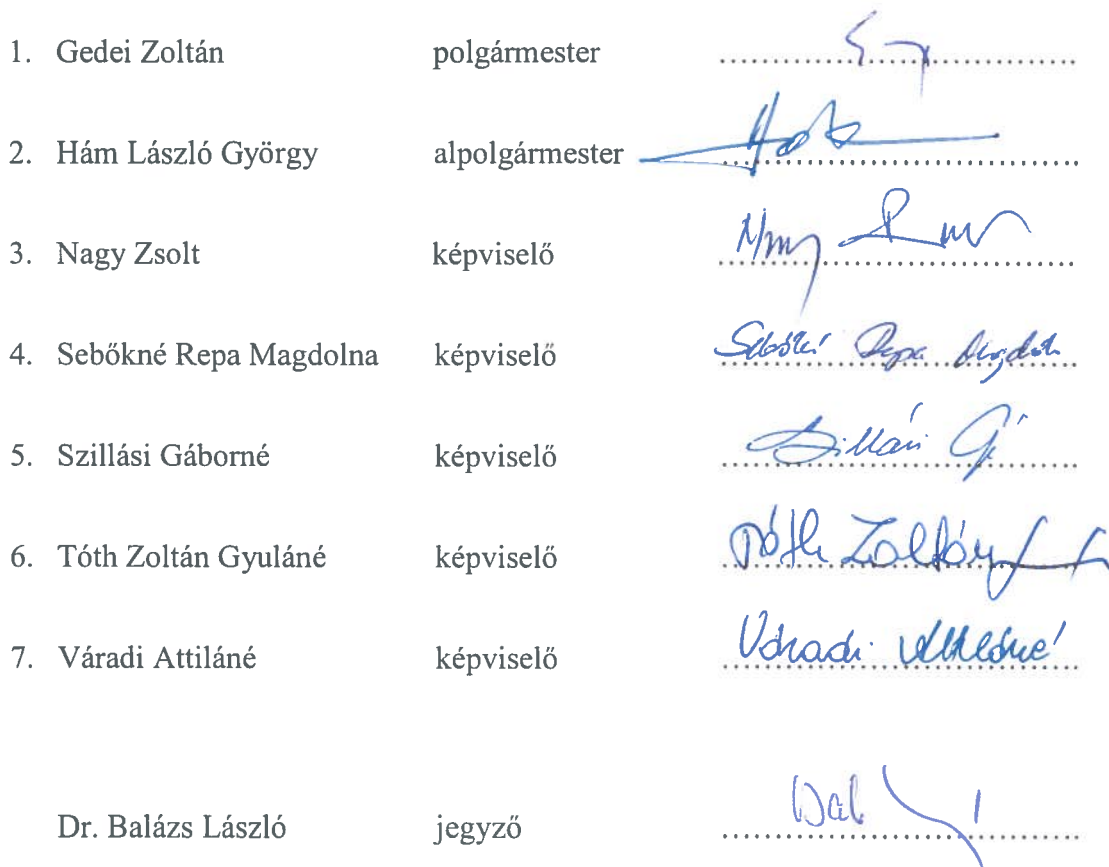 1. Gedei Zoltán polgármester
2. Hám László György alpolgármester
3. Nagy Zsolt képviselő
4. Sebőkné Repa Magdolna képviselő Repa
5. Szillási Gáborné képviselő
6. Tóth Zoltán Gyuláné képviselő Tóth Zoltán
7. Váradi Attiláné képviselő Váradi Attiláné
Dr. Balázs László jegyző